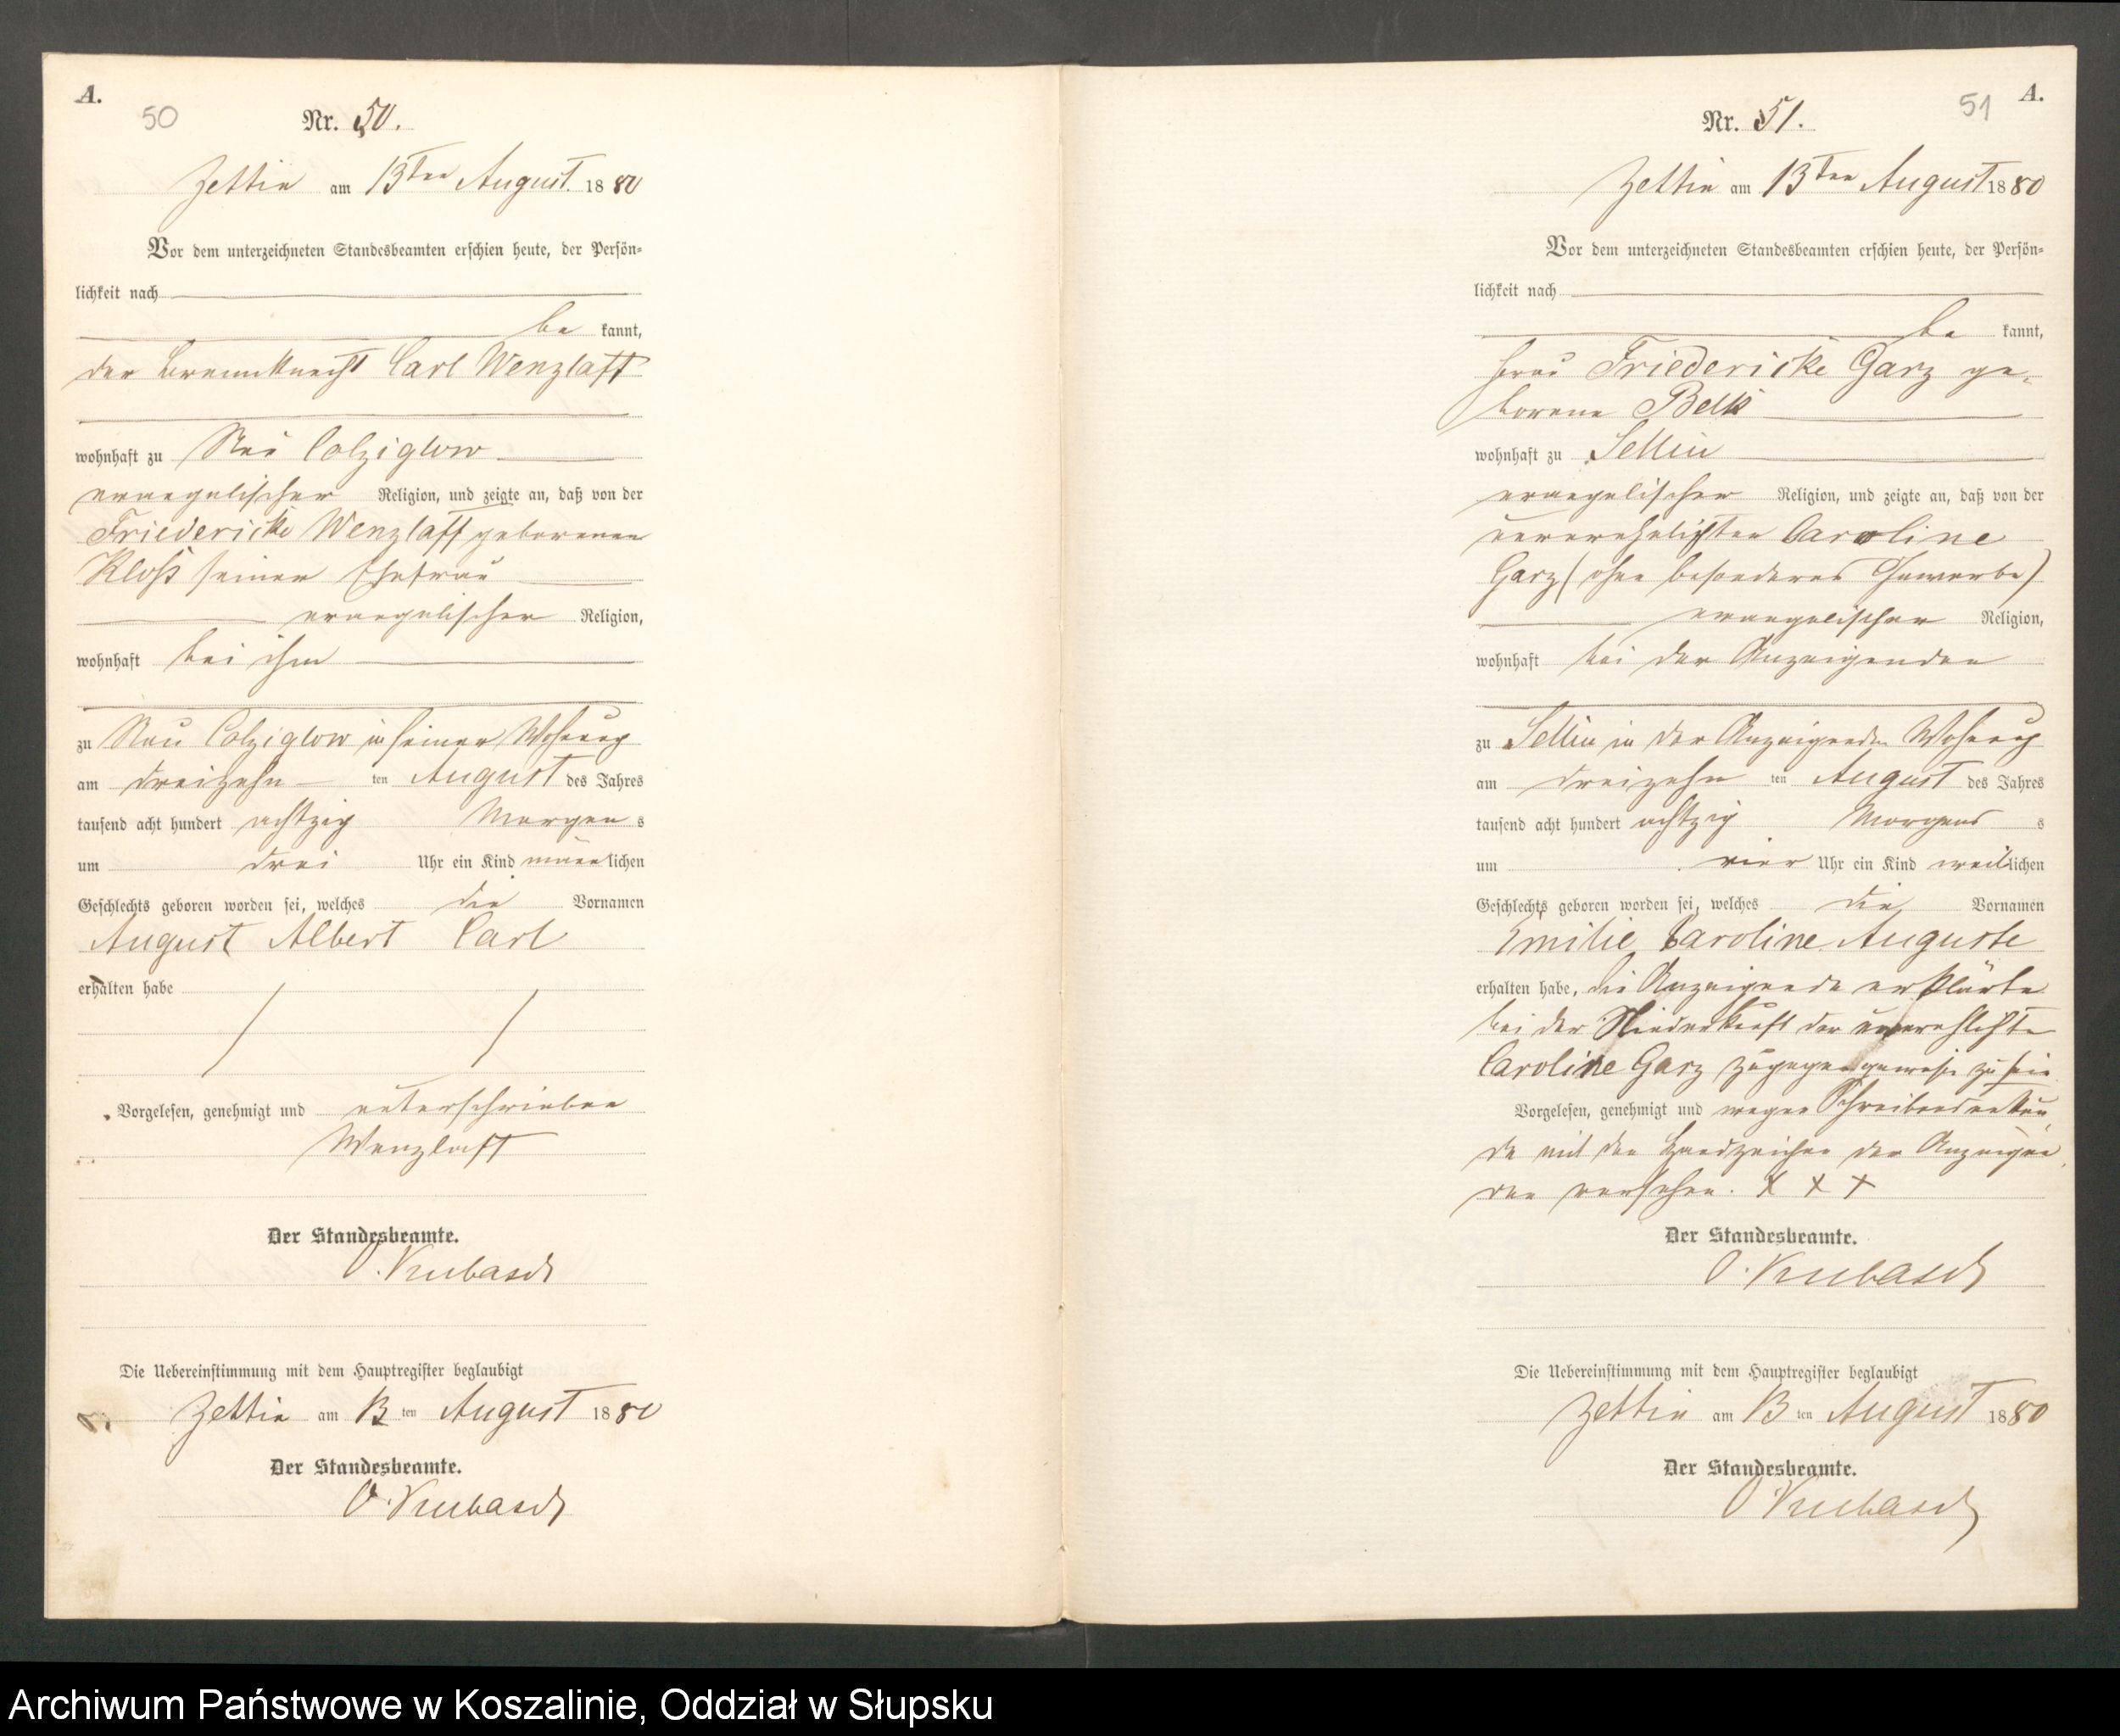 A.
50
Nr. 50.
Zettin am 13ten August 1880
Vor dem unterzeichneten Standesbeamten erschien heute, der Persön-
lichkeit nach
be kannt,
der Brennknecht Carl Wenzlaff
wohnhaft zu Neu Colziglow
evangelischer Religion, und zeigte an, daß von der
Friedericke Wenzlaff geborenen
Kloß seiner Ehefrau
evangelischer Religion,
wohnhaft bei ihm
zu Neu Colziglow in seiner Wohnung
am dreizehn ten August des Jahres
tausend acht hundert achtzig Morgen s
um drei Uhr ein Kind männlichen
Geschlechts geboren worden sei, welches die Vornamen
August Albert Carl
erhalten habe
Vorgelesen, genehmigt und unterschrieben
Wenzlaff
Der Standesbeamte.
O. Kubasch
Die Uebereinstimmung mit dem Hauptregister beglaubigt
Zettin am 13 ten August 1880
Der Standesbeamte.
O. Kubasch
51
A.
Nr. 51.
Zettin am 13ten August 1880
Vor dem unterzeichneten Standesbeamten erschien heute, der Persön-
lichkeit nach
be kannt,
Frau Friedericke Garz ge-
borene Belk
wohnhaft zu Sellin
evangelischer Religion, und zeigte an, daß von der
unverehelichten Caroline
Garz (ohne besonderes Gewerbe)
evangelischer Religion,
wohnhaft bei der Anzeigenden
zu Sellin in der Anzeigenden Wohnung
am dreizehn ten August des Jahres
tausend acht hundert achtzig Morgens s
um vier Uhr ein Kind weiblichen
Geschlechts geboren worden sei, welches die Vornamen
Emilie Caroline Auguste
erhalten habe, die Anzeigende erklärte
bei der Niederkunft der unverehlichte
Caroline Garz zugegen gewesen zu sein
Vorgelesen, genehmigt und wegen Schreibensunkun
de mit den Handzeichen der Anzeigen
den versehen. X X X
Der Standesbeamte.
O. Kubasch
Die Uebereinstimmung mit dem Hauptregister beglaubigt
Zettin am 13 ten August 1880
Der Standesbeamte.
O Kubasch
Archiwum Państwowe w Koszalinie, Oddział w Słupsku